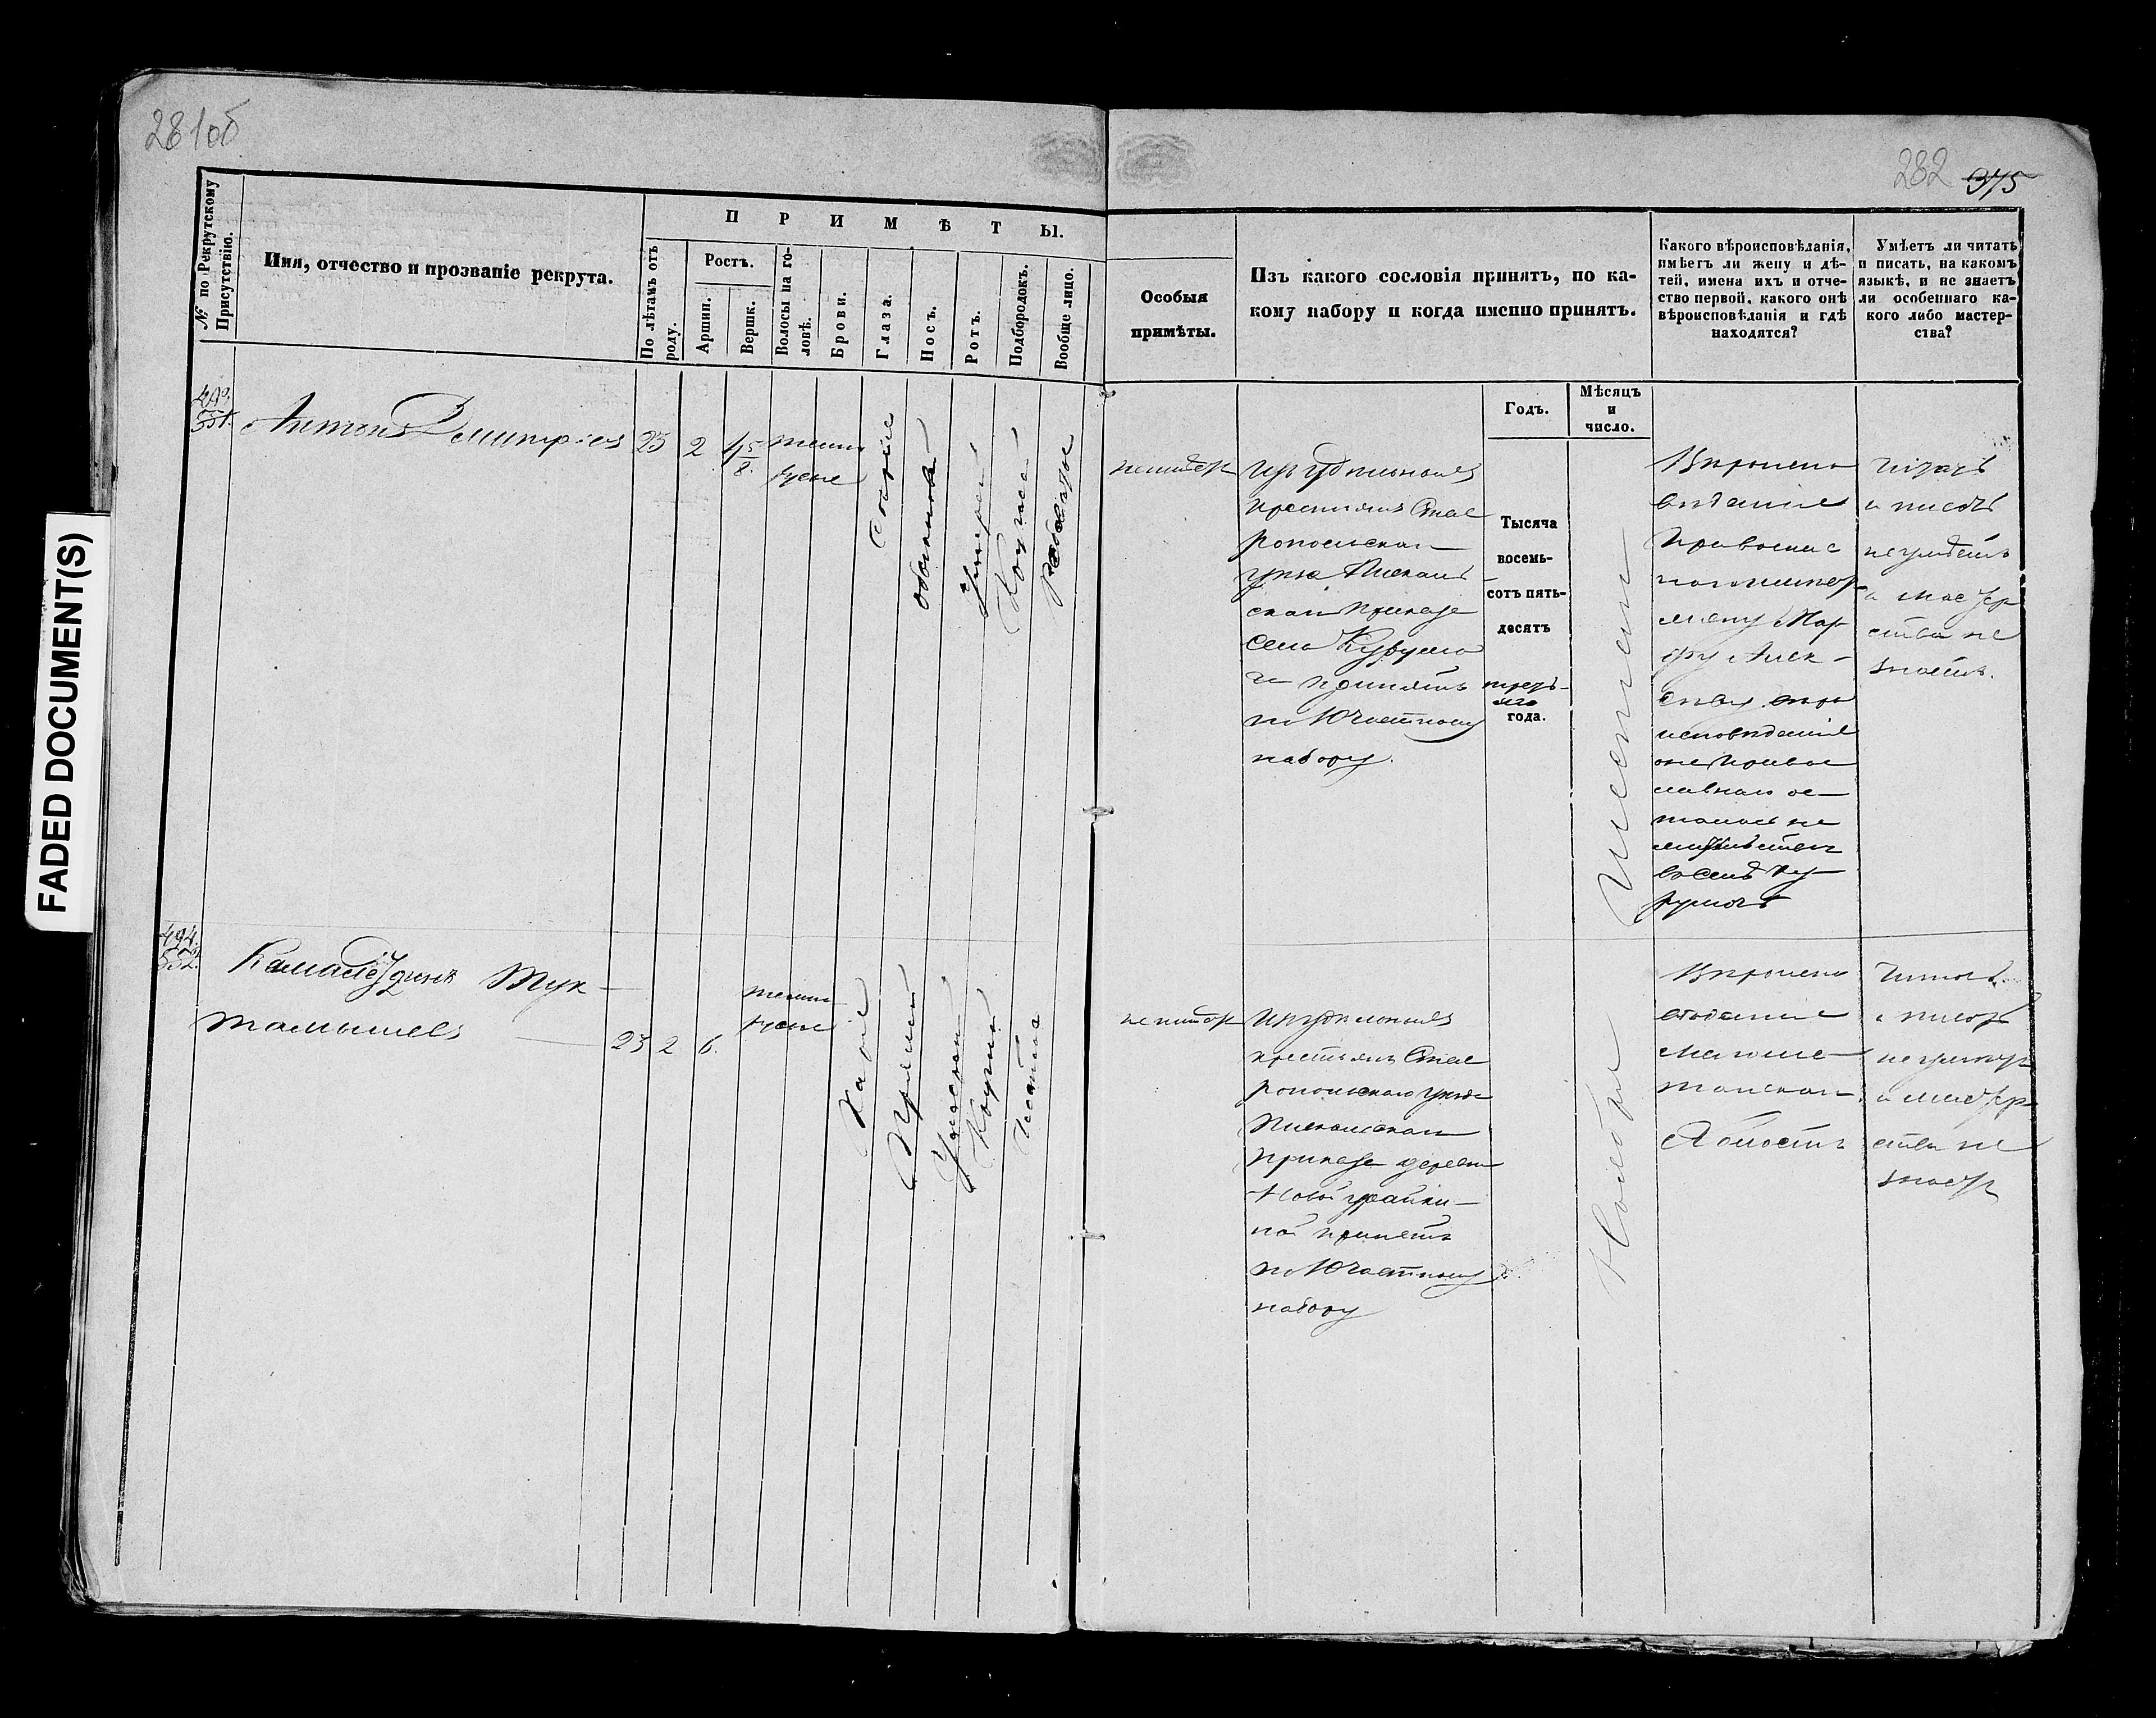 281об
282 375
FADED DOCUMENT(S)
№ по Рекрутскому Присутствію.
Имя, отчество и прозваніе рекрута.
ПРИМѢТЫ.
По лѣтамъ отъ роду.
Ростъ.
Аршин.
Вершк.
Волосы на го-
ловѣ.
Брови.
Глаза.
Носъ.
Ротъ.
Подбородокъ.
Вообще лицо.
Особыя
примѣты.
Изъ какого сословія принятъ, по ка-
кому набору и когда именно принятъ.
Какого вѣроисповѣданія,
имѣетъ ли жену и дѣ-
тей, имена ихъ и отче-
ство первой, какого онѣ
вѣроисповѣданія и гдѣ
находятся?
Умѣетъ ли читать
и писать, на какомъ
языкѣ, и не знаетъ
ли особеннаго ка-
кого либо мастер-
ства?
Годъ.
Мѣсяцъ
и
число.
551.
Антонъ Дмитріевъ
25
2
4 5/8.
темно
русые
Сѣрые
обыкновен
Умерен
Круглой
неимѣетъ
изъ удѣльныхъ
крестьянъ Став
ропольскаго
уѣзда
скаго приказа
села
принятъ
по 10 частному
набору.
Тысяча
восемь-
сотъ пять-
десятъ
третьяго
года.
Вѣроиспо
вѣданія
Православ
наго имѣетъ
жену Мар
фу Алек
исповѣданія
она Правос
лавнаго ос
талась на
жительствѣ
въ селѣ
Читать
и писать
неумѣетъ
и мастер
ства не
знаетъ.
494.
552.
Камалетдинъ Тук
тамышевъ
23
2
6.
темно
русые
Каріе
Прямой
Умерен
Круглой
Чистое
неимѣетъ
Изъ удѣльныхъ
крестьянъ Став
ропольскаго уѣзда
приказа деревни
Новой
ной принятъ
по 10 частному
набору
Ноября
Вѣроиспо
вѣданія
магоме
танскаго.
Холостъ
Читать
и писать
неумѣетъ
и мастер
ства не
знаетъ